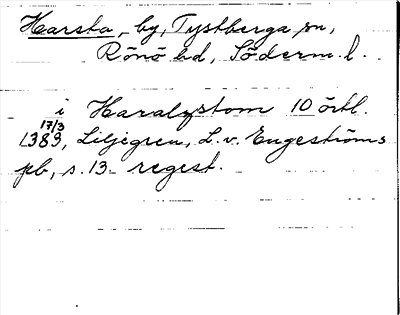 Harsta, by, Tystberga sn,
Rönö hd, Söderm. l.
i Haralzstom 10 örtl.
17/3
1383, Liljegren, L. v. Engeströms
pb, s. 13 - regest.